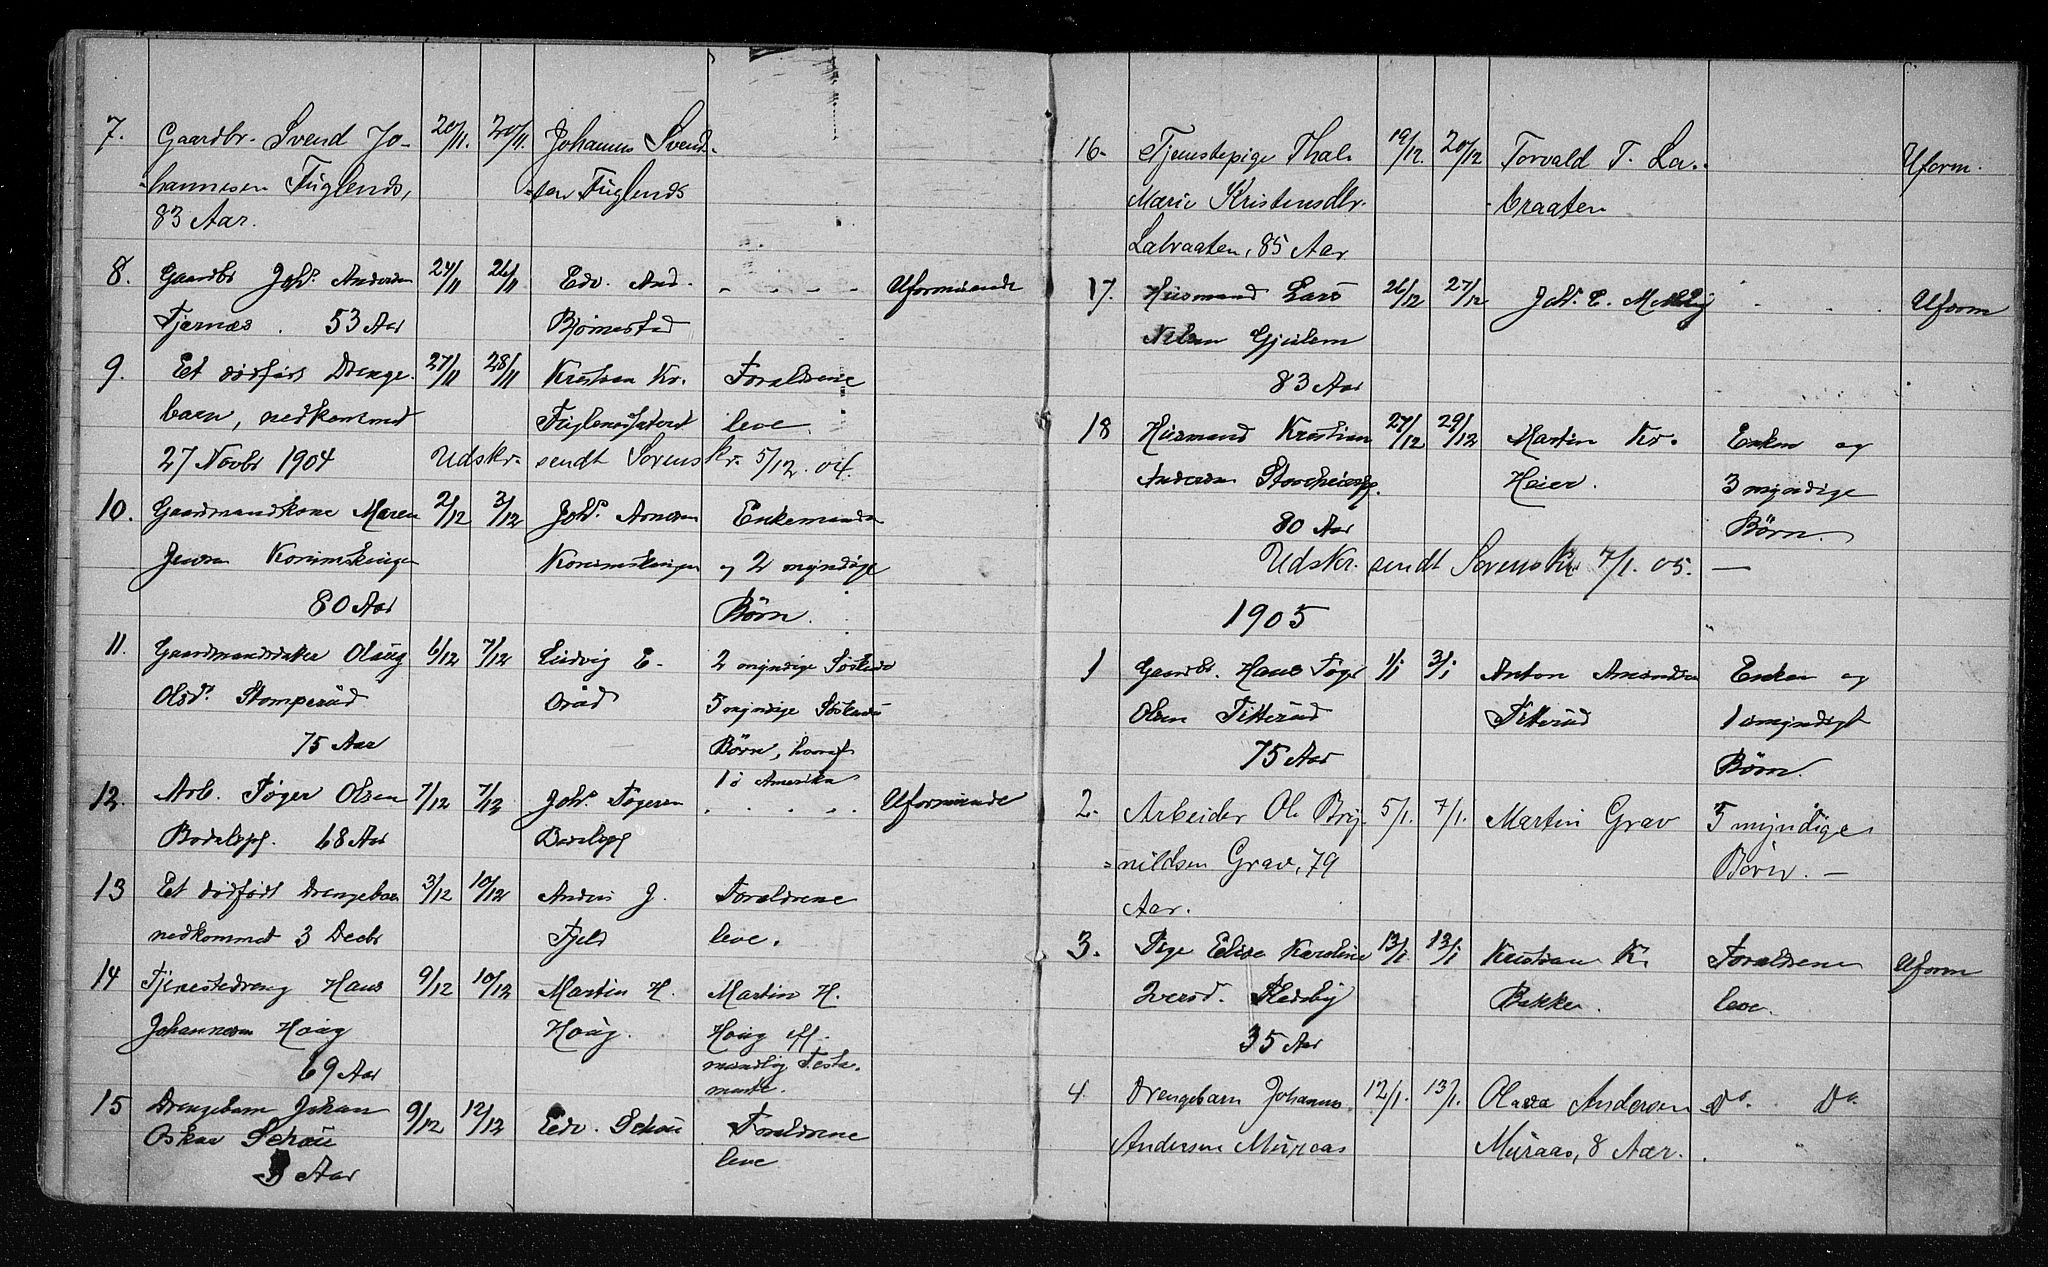 7. Gaardbr. Svend Jo- 20/11. 20/11. Johannes Svend-
hannesen Fuglenes, sen Fuglenes
83 Aar.
8. Gaardbr Johs. Andersen 24/11 26/11 Edv. And. - - - - Uformuende
Tjernæs. 53 Aar Bjørnestad
9. Et dødfødt Drenge- 27/11 28/11 Kristian Kr. Forældrene
barn, nedkommet leve.
27 Novbr 1904 Udskr. sendt Sorenskr. 5/12. 04.
10. Gaardmandskone Maren 2/12 3/12 Johs. Enkemanden
Jensen og 2 myndige
80 Aar Børn.
11. Gaardmandsdatter Olaug 6/12 7/12 Ludvig E. 2 myndige Søskende
Olsdr. Stomperud Oraad 5 myndige Søskende
75 Aar Børn, hvoraf
1 i Amerika
12. Arb. Tøger Olsen 7/12 7/12 Johs. Tøgersen . . . . Uformuende
68 Aar
13 Et dødfødt Drengebarn 3/12 10/12 Anders J. Forældrene
nedkommet 3 Decbr Fjeld leve.
14 Tjenestedreng Hans 9/12 10/12 Martin H. Martin H.
Johannesen Haug Haug. Haug eft.
69 Aar mundlig Testa-
mente.
15 Drengebarn Johan 9/12 12/12 Edv. Schau Forældrene
Oskar Schau leve
Aar
16. Tjenestepige Thal. 19/12. 20/12 Torvald T. La- Uform.
Marie Kristensdtr. braaten
Labraaten, 85 Aar
17. Husmand Lars 26/12 27/12 Joh. E. . . . Uform
Nilsen Gjulem
83 Aar
18 Husmand Kristian 27/12 29/12 Martin Kr. Enken og
Andersen Heier. 3 myndige
80 Aar Børn.
Udskr. sendt Sorenskr 7/1. 05. —
1905
1 Gaardbr. Hans Tøger 1/1 3/1 Anton Amundsen Enken og
Olsen Titterud Titterud 1 umyndigt
75 Aar Børn.
2. Arbeider Ole Bry- 5/1. 7/1. Martin Grav 5 myndige
nildsen Grav, 79 Børn. —
Aar.
3. Pige Elise Karoline 13/1 13/1 Kristian K. Forældrene Uform
Iversd. Bakken. leve.
35 Aar
4. Drengebarn Johannes 12/1. 13/1. Olava Andersen Do. Do.
Andersen Muraas Muraas, 8 Aar. .